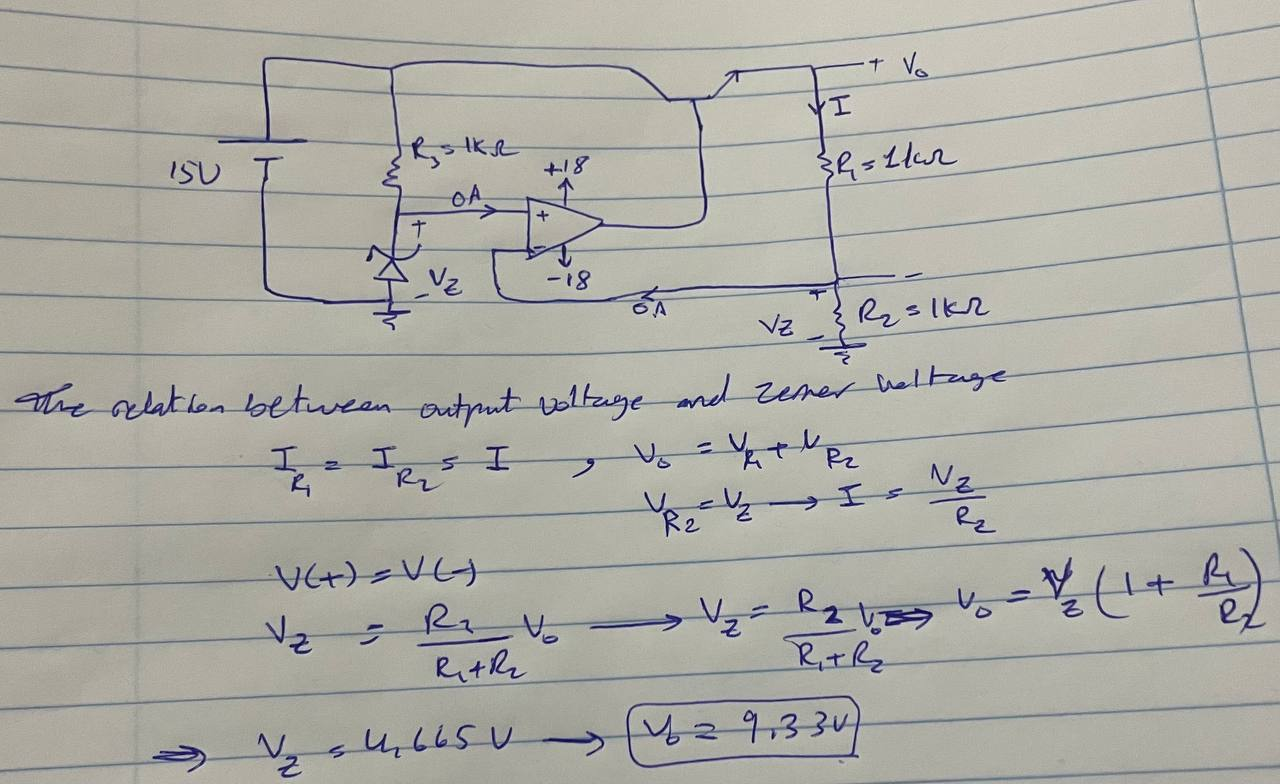 + V₀
I
15V
R₃ = 1kΩ
+18
R₁ = 1kΩ
0A
+
+
-
- V_Z
-18
0A
-
+
V_Z
-
R₂ = 1kΩ
The relation between output voltage and zener voltage
I_R₁ = I_R₂ = I , V₀ = V_R₁ + V_R₂
V_R₂ = V_Z → I = V_Z / R₂
V(+) = V(-)
V_Z = R₂ / (R₁+R₂) V₀ → V_Z = R₂ / (R₁+R₂) V₀ ⇒ V₀ = V_Z (1 + R₁ / R₂)
⇒ V_Z = 4,665 V → V₀ = 9,33V